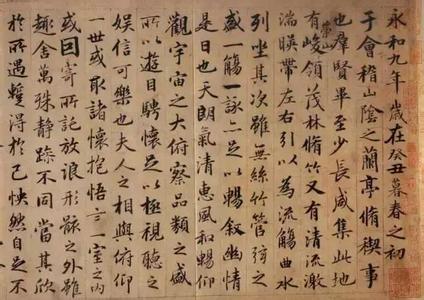 永和九年歲在癸丑暮春之初
于會稽山陰之蘭亭脩稧事
也羣賢畢至少長咸集此地
有崇山峻領茂林脩竹又有清流激
湍暎帶左右引以為流觴曲水
列坐其次雖無絲竹管弦之
盛一觴一詠亦足以暢敘幽情
是日也天朗氣清惠風和暢仰
觀宇宙之大俯察品類之盛
所以遊目騁懷足以極視聽之
娛信可樂也夫人之相與俯仰
一世或取諸懷抱悟言一室之內
或因寄所託放浪形骸之外雖
趣舍萬殊靜躁不同當其欣
於所遇蹔得於己怏然自足不